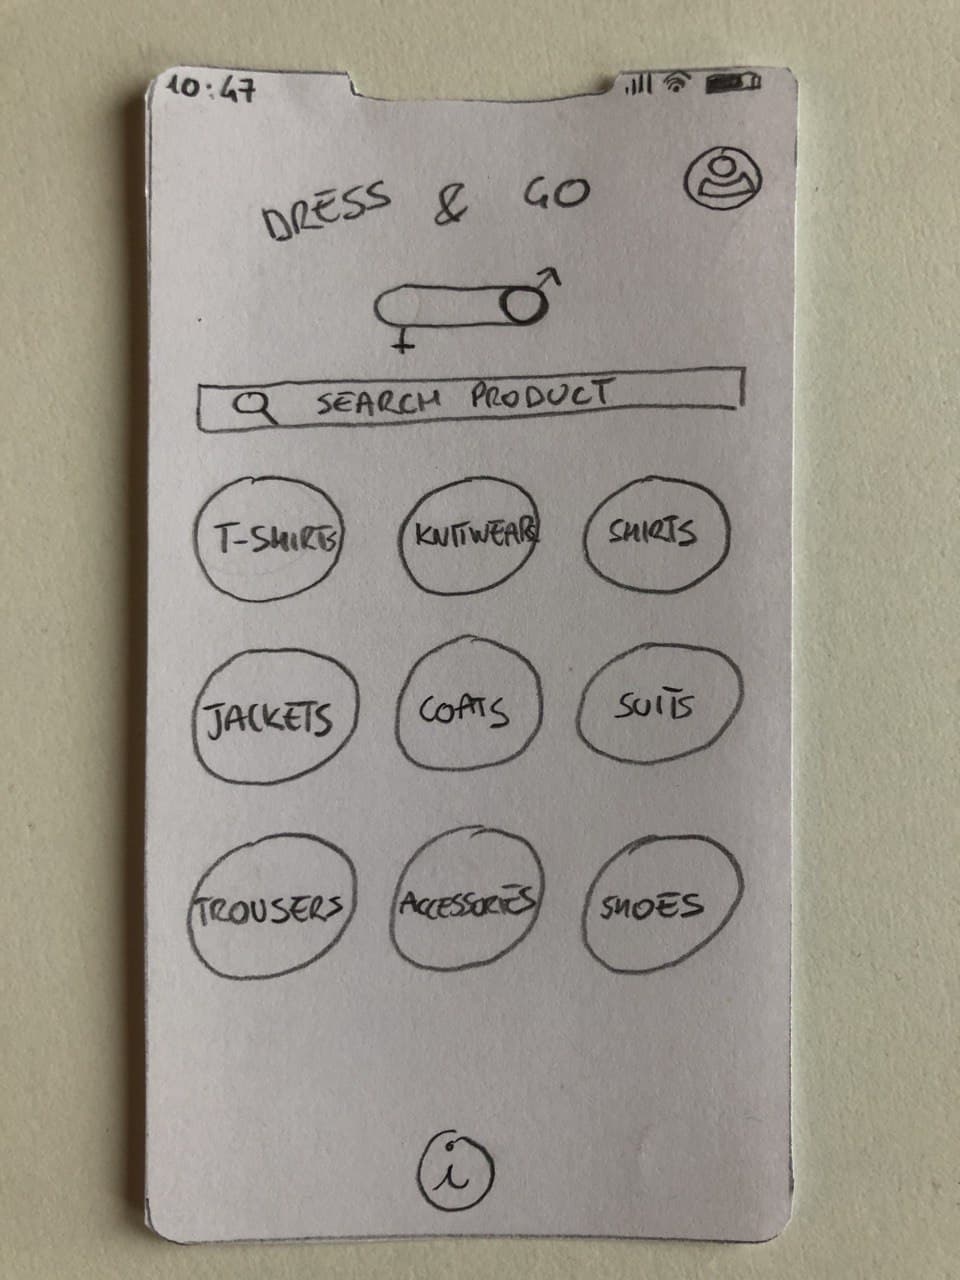 10:47
DRESS & GO
SEARCH PRODUCT
T-SHIRTS KNITWEAR SHIRTS
JACKETS COATS SUITS
TROUSERS ACCESSORIES SHOES
i